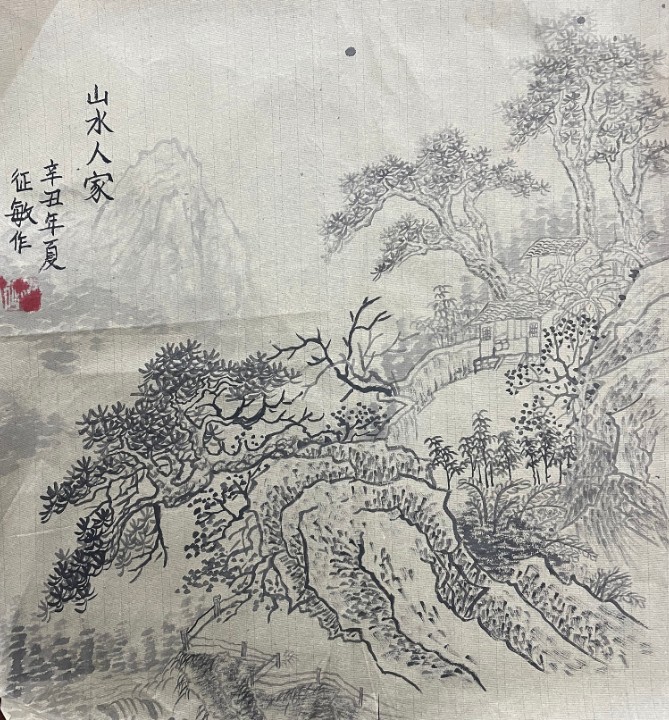 山水人家
辛丑年夏
征敏作